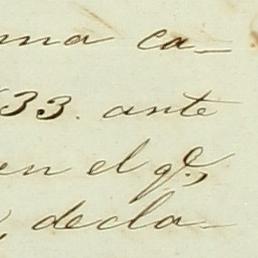 ma ca_
33. ante
en el q.e,
, decla_